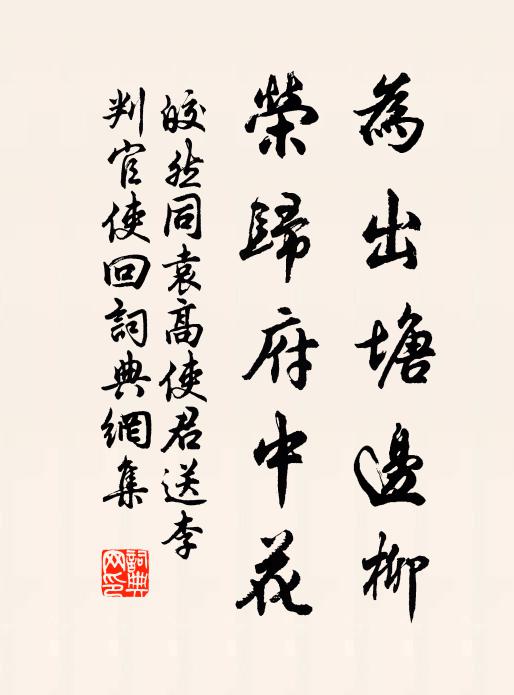 為出塘邊柳
榮歸府中花
皎然同袁高使君送李
判官使回詞典網集
詞典網印